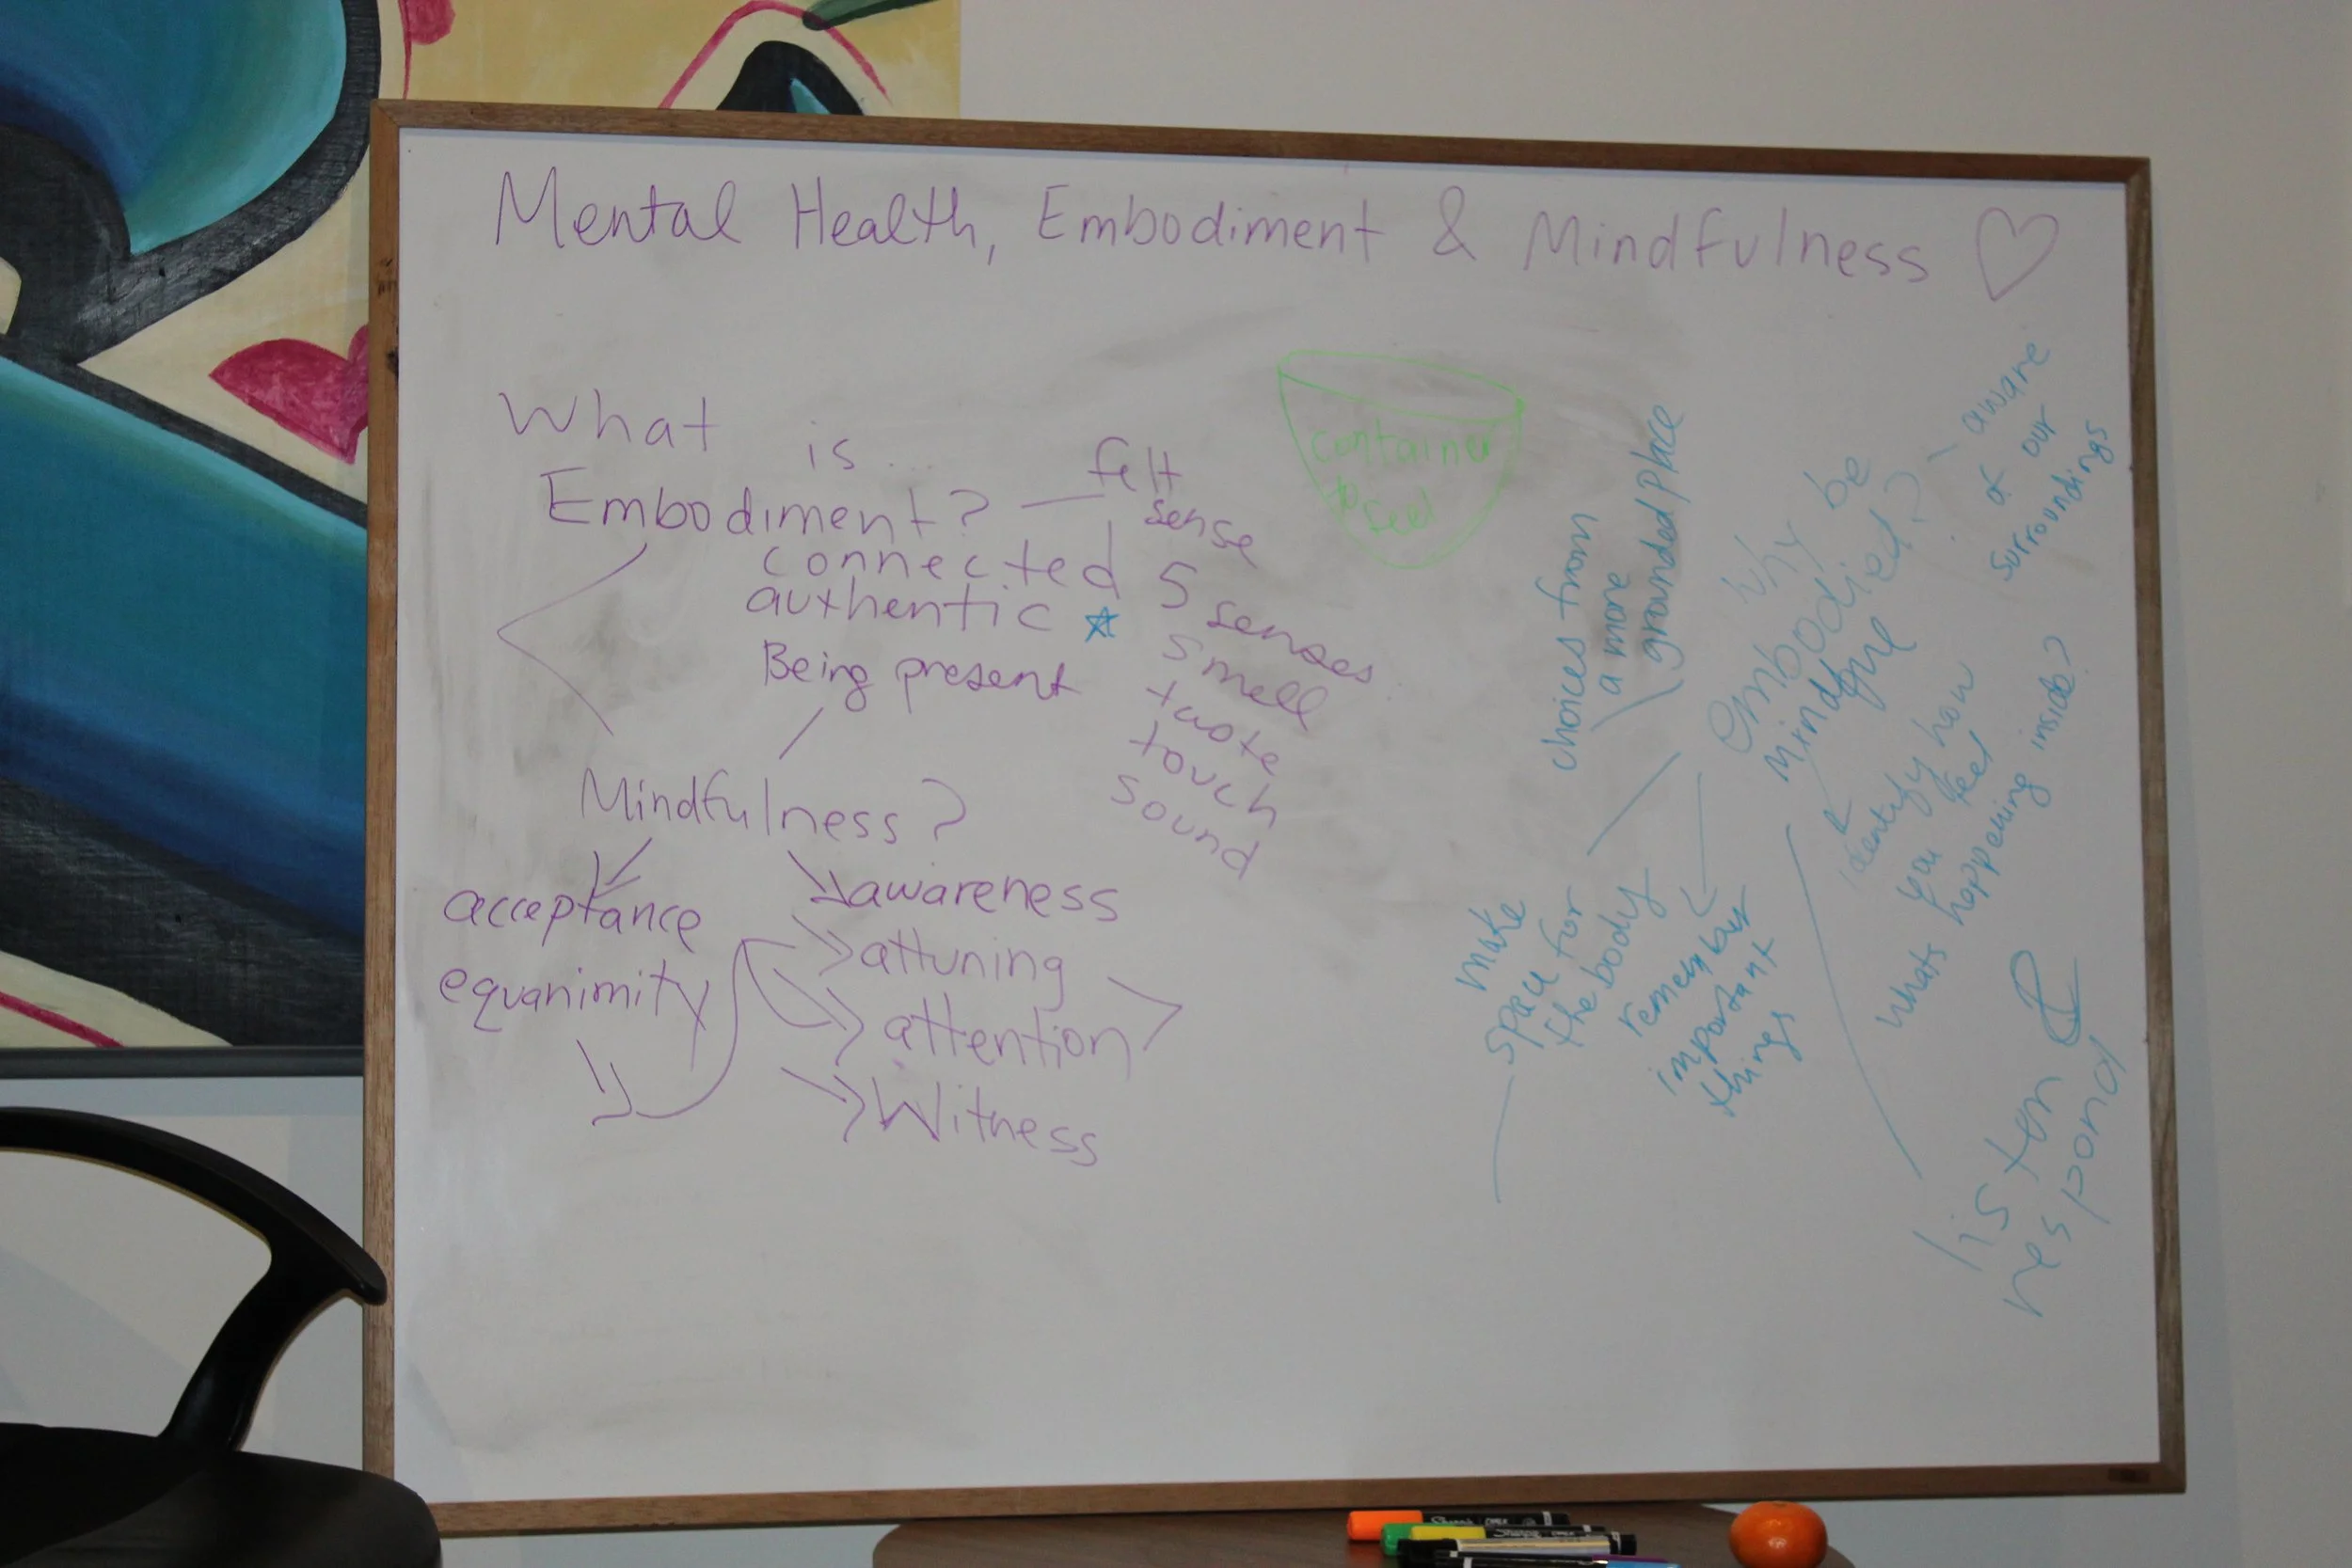 Mental Health, Embodiment & Mindfulness
What is
Embodiment?
felt
sense
connected
authentic
Being present
5 senses
smell
taste
touch
sound
Mindfulness?
acceptance
equanimity
awareness
attuning
attention
Witness
container
to
feel
choices from
a more
grounded place
why be
embodied?
Mindful
aware
of our
surroundings
identify how
you feel
whats happening inside?
make
space for
the body
remember
important
things
listen &
respond
Sharpie
Sharpie